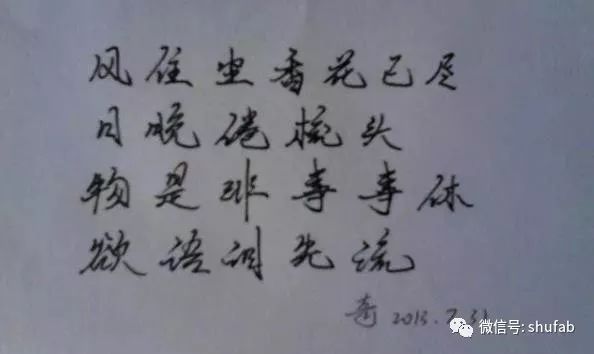 风住尘香花已尽
日晚倦梳头
物是非事事休
欲语泪先流
2013.7.31
微信号: shufab